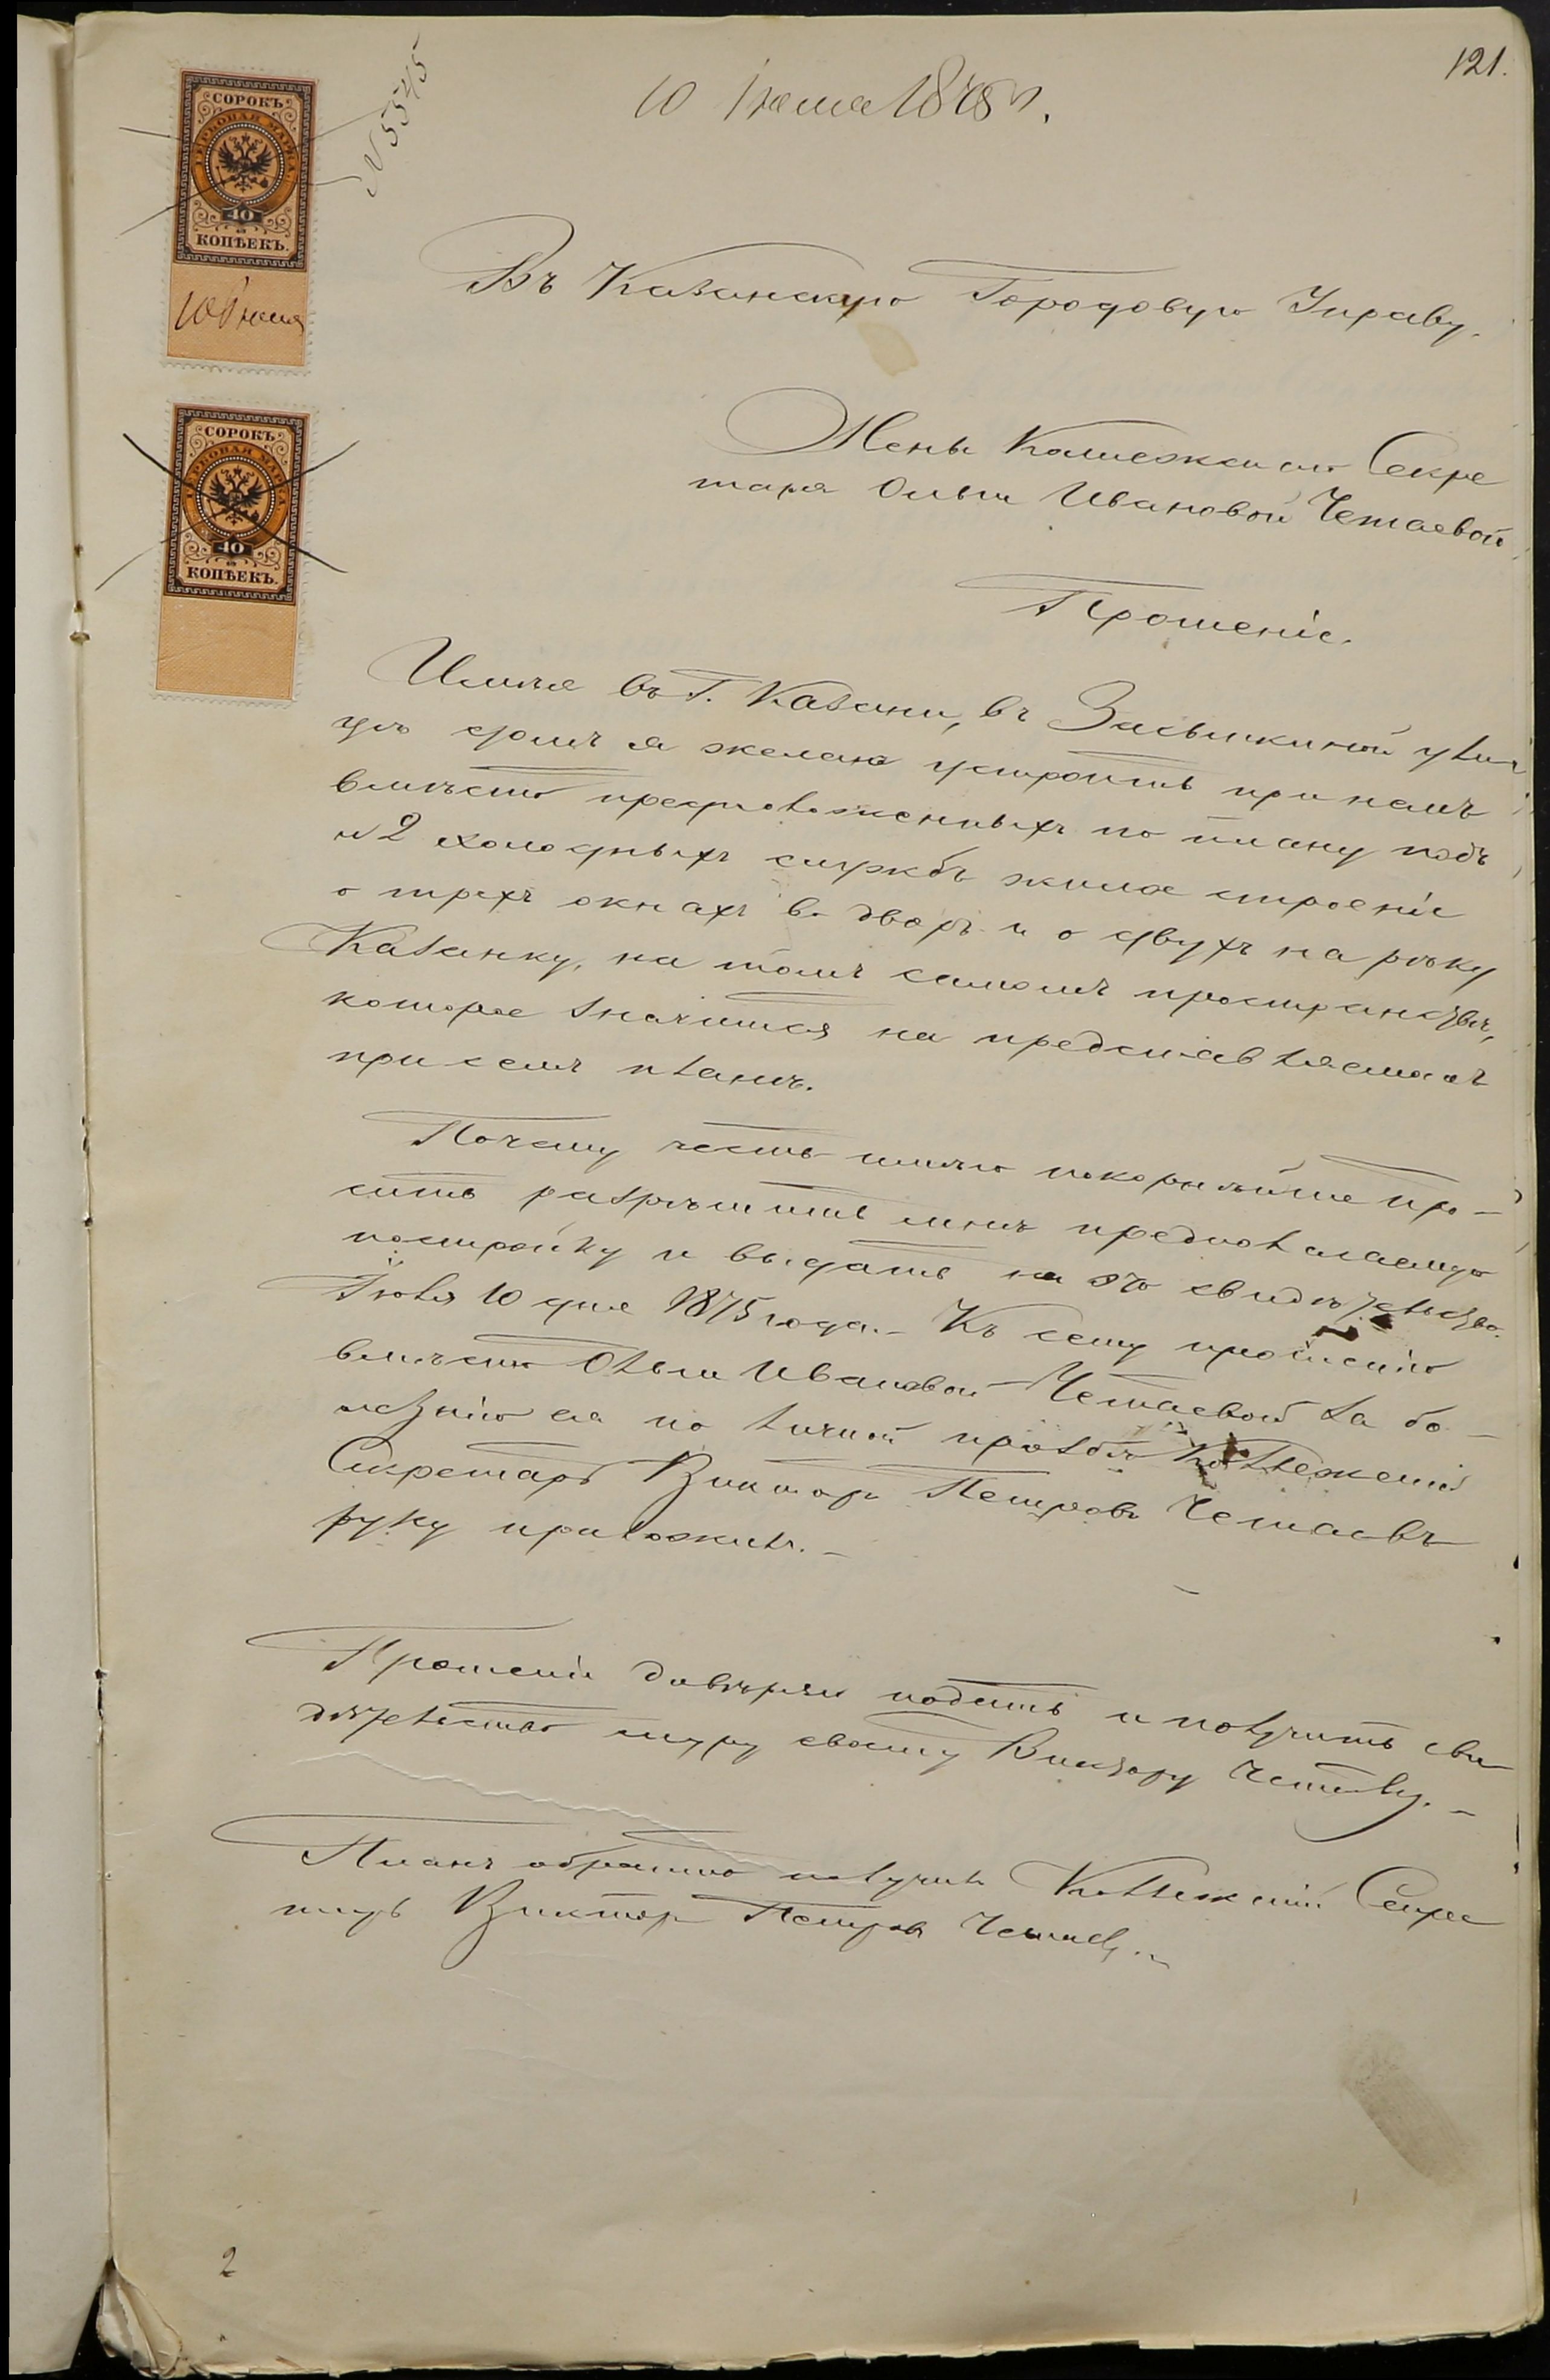 121.
10 Іюля 1875 г.
N 5545
СОРОКЪ
ГЕРБОВАЯ МАРКА
40
КОПѢЕКЪ.
10 Іюля
СОРОКЪ
ГЕРБОВАЯ МАРКА
40
КОПѢЕКЪ.
Въ Казанскую Городовую Управу.
Жены Коллежскаго Секре
таря Ольги Ивановой Четаевой
Прошеніе.
Имѣя въ г. Казани, въ Засыпкиной ули
цѣ домъ я желаю устроить при немъ
вмѣсто предположенныхъ по плану подъ
№ 2 холодныхъ службъ жилое строеніе
о трехъ окнахъ во дворъ и о двухъ на рѣку
Казанку, на томъ самомъ пространствѣ,
которое значится на представляемомъ
при семъ планѣ.
Почему честь имѣю покорнѣйше про-
сить разрѣшить мнѣ предполагаемую
постройку и выдать на это свидѣтельство.
Іюля 10 дня 1875 года. - Къ сему прошенію
вмѣсто Ольги Ивановой Четаевой за бо-
лезнію ея по личной прозьбѣ Коллежскій
Секретарь Викторъ Петровъ Четаевъ
руку приложилъ. -
Прошеніе довѣряю подать и получить сви
дѣтельство мужу своему Виктору Четаеву. -
Планъ обратно получилъ Коллежскій Секре
тарь Викторъ Петровъ Четаевъ. -
2